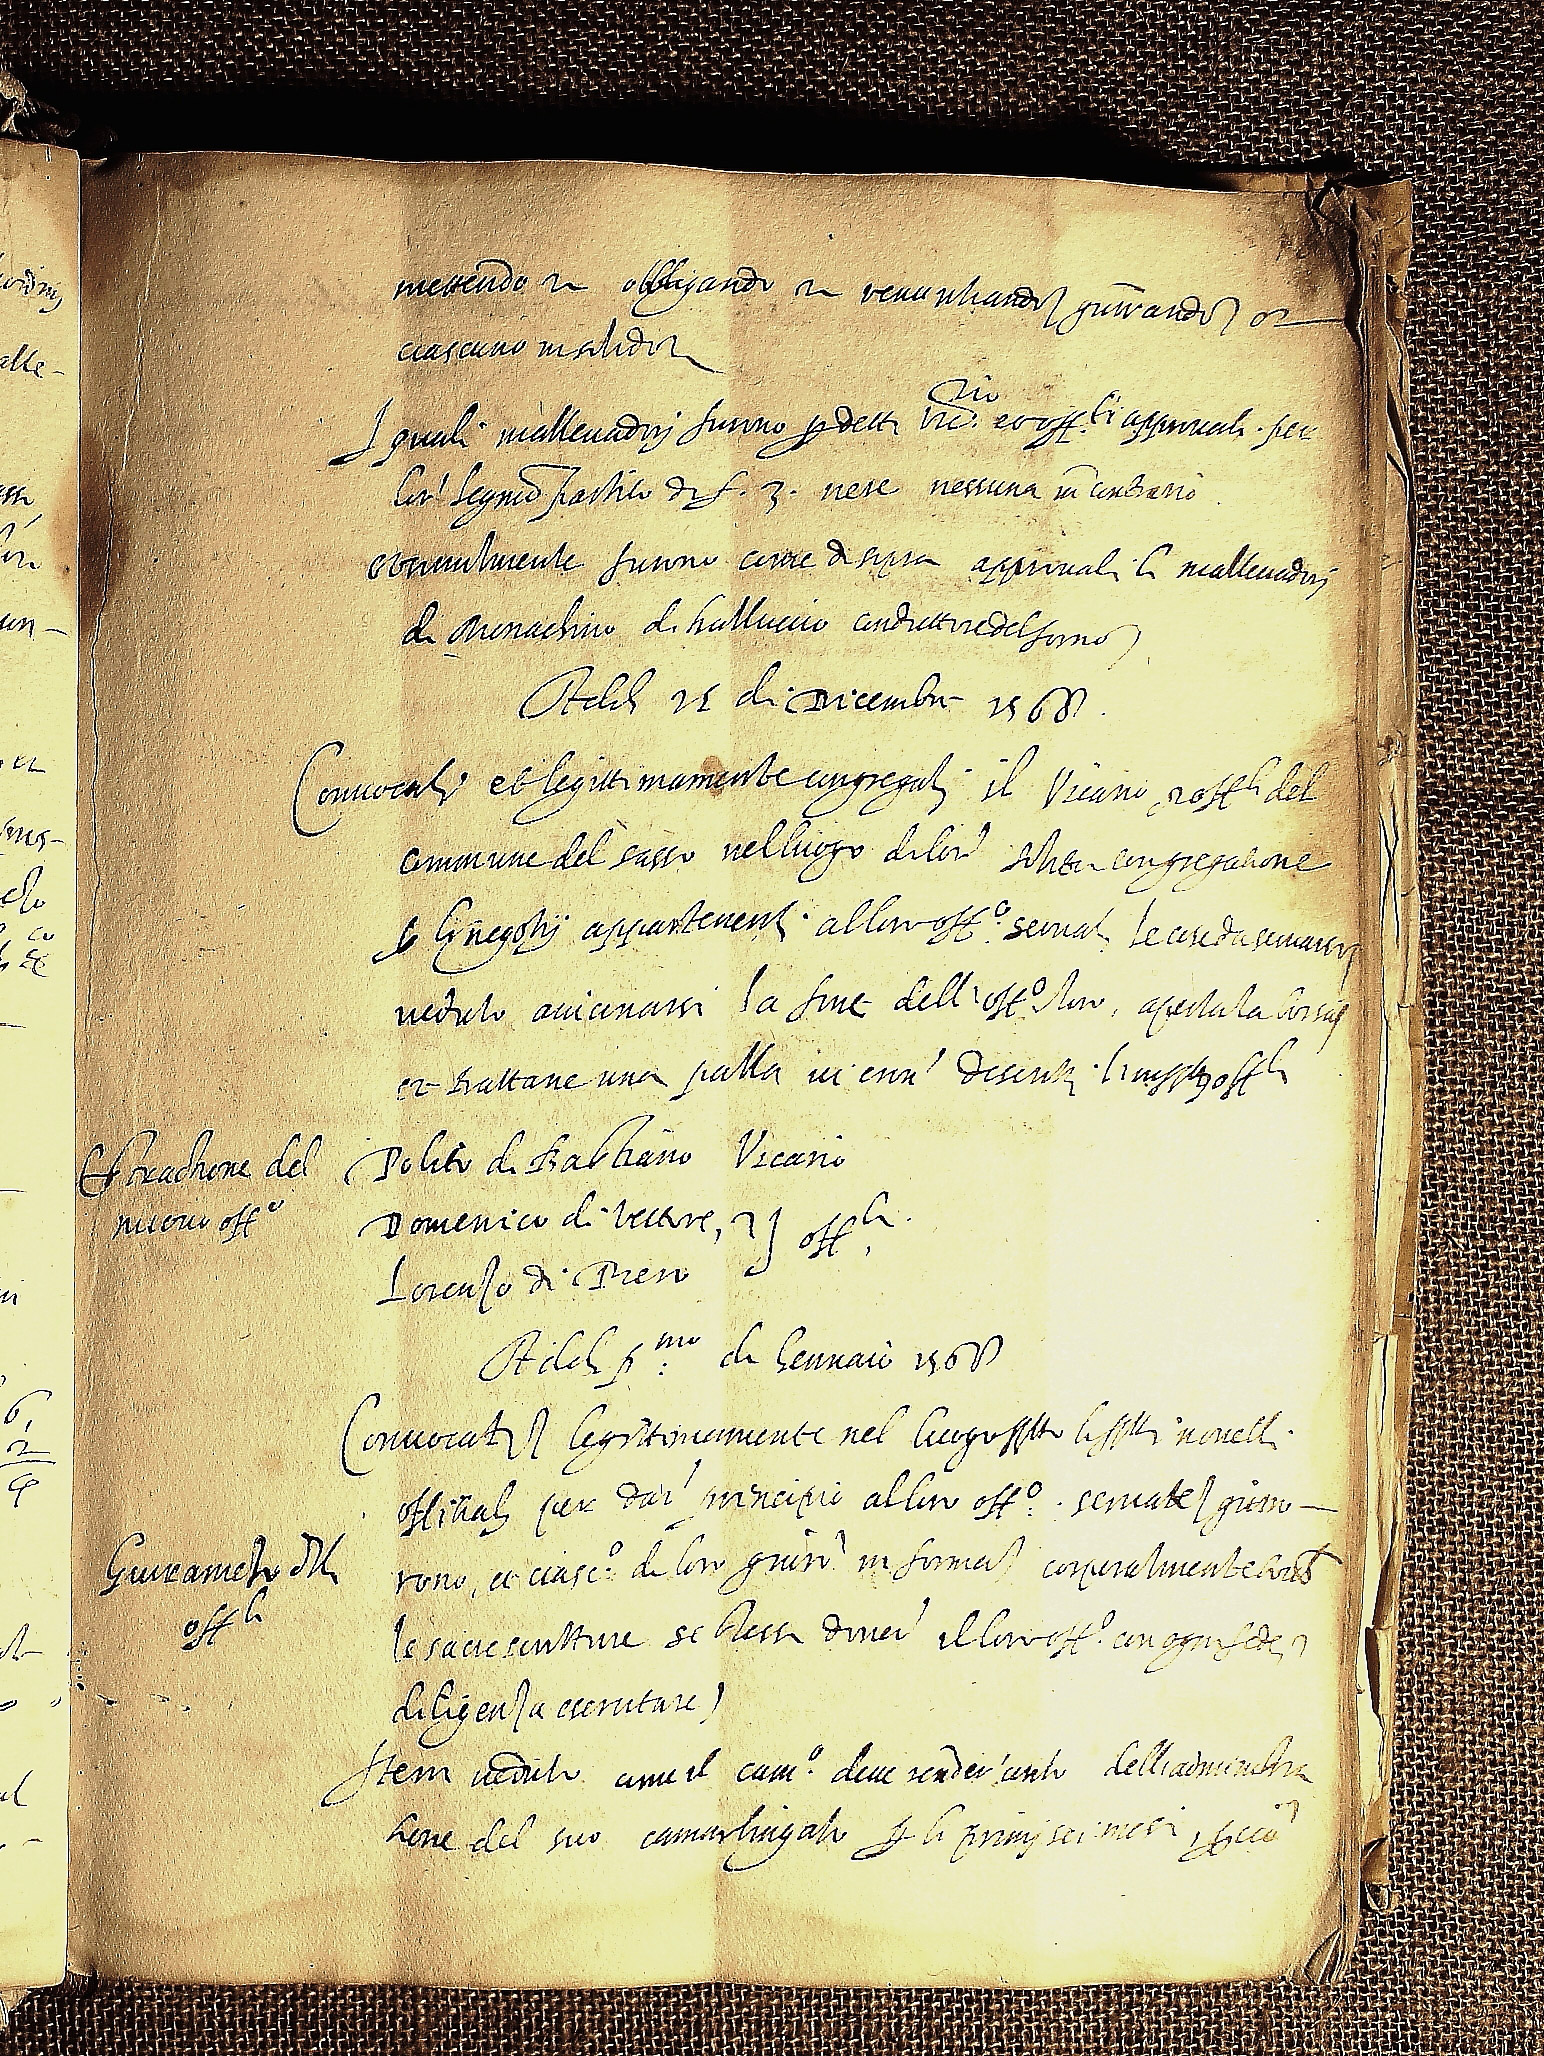 mettendo et obbligando et renuntiando giurando et
ciascuno in solido
I quali mallevadori furno p detti Vic.rio et off.li approvati per
lor' legmo partito di f. 3. nere nessuna in contrario
et similmente furno come di sopra approvati li mallevadori
di Menachino di Galluccio conduttore del forno
Addi 25 di Dicembre 1568.
Convocati et legittimamente congregati il Vicario et offli del
commune del sasso nel luogo di lor' solita congregatione
p li negotij appartenenti al loro offo. servati le cose da servarsi
veduto avicinarsi la fine dell' offo loro, aperta la borsa
et trattane una palla in era' descritti l'inffti offli
Estrazione del
nuovo offo
Polito di Bastiano Vicario
Domenico di Vettore, et
Lorenzo di Piero
offli.
Addi pmo: di Gennaio 1568
Convocati legittimamente nel luogo sstto li sstti novelli
offitiali per dar' principio al loro offo. servate giuro-
rono, et ciasco. di loro giurò in forma corporalmente tocche
Giuramento dlli
offli
le sacre scritture se stessi dover' il loro offo. con ogni fede et
diligenza esercitare
Item veduto come il camo. deve render' conto dell'administra
tione del suo camarlingato p li primi sei mesi,